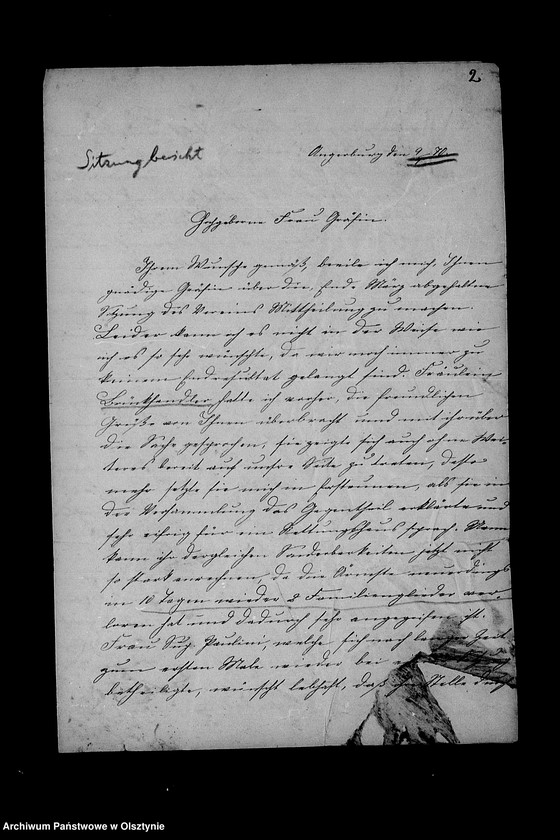 2
Sitzungbericht
Angerburg den 9.
Hochgeborene Frau Gräfin.
Ihrem Wunsche gemäß, beeile ich mich, Ihnen
gnädige Gräfin über die, Ende März abgehaltene
Sitzung des Vereins Mittheilung zu machen.
Leider kann ich es nicht in der Weise wie
ich es so sehr wünschte, da wir noch immer zu
keinem Endresultat gelangt sind. Fräulein
hatte ich vorher, die freundlichen
Grüße von Ihnen überbracht und mit ihr über
die Sache gesprochen, sie zeigte sich auch ohne Wei-
teres bereit auf unsre Seite zu treten, desto
mehr setzte sie mich in Erstaunen, als sie in
der Versammlung das Gegentheil erklärte und
sehr eifrig für ein Rettungshaus sprach. Man
kann ihr dergleichen Sonderbarkeiten jetzt nicht
so stark anrechnen, da die Ärmste neuerdings
in 10 Tagen wieder 2 Familienglieder ver-
loren hat und dadurch sehr angegriffen ist.
Frau Sup. Paulini, welche sich nach langer Zeit
zum ersten Male wieder bei
betheiligte, wünscht lebhaft, daß Stelle
Archiwum Państwowe w Olsztynie